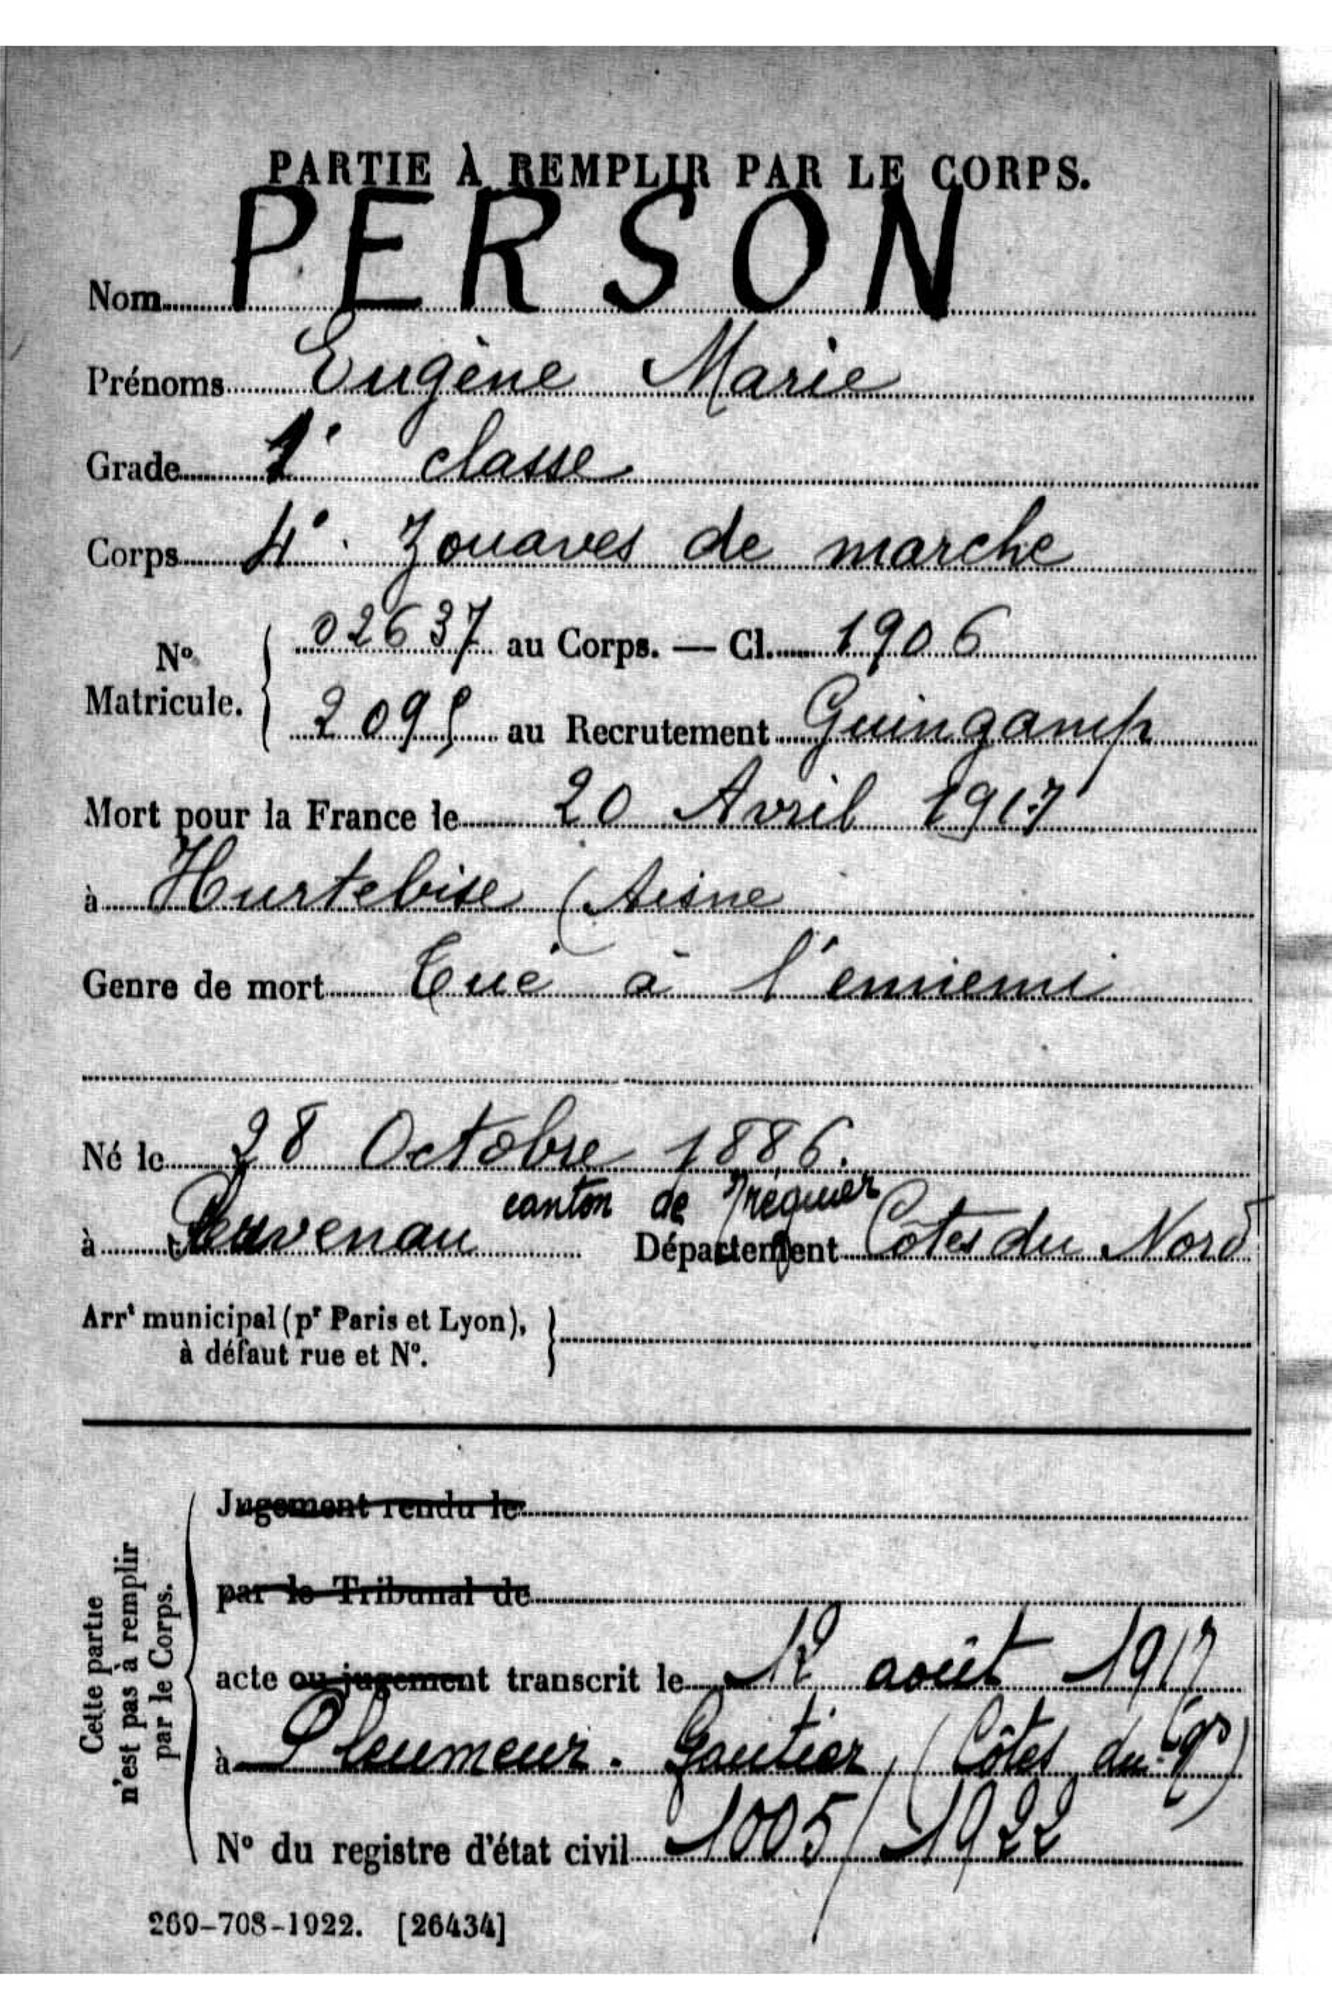 PARTIE À REMPLIR PAR LE CORPS.
Nom PERSON
Prénoms Eugène Marie
Grade 1e classe
Corps 4e Zouaves de marche
No Matricule. { 02637 au Corps. — Cl. 1906
2095 au Recrutement Guingamp
Mort pour la France le 20 Avril 1917
à Hurtebise (Aisne
Genre de mort Tué à l'ennemi
Né le 28 Octobre 1886.
canton de Tréguier
à Département Côtes du Nord
Arrt municipal (pr Paris et Lyon), à défaut rue et No. }
Cette partie n'est pas à remplir par le Corps.
Jugement rendu le
par le Tribunal de
acte ou jugement transcrit le 12 août 1917
à Pleumeur-Gautier (Côtes du Nd)
No du registre d'état civil 1005/1922
269-708-1922. [26434]